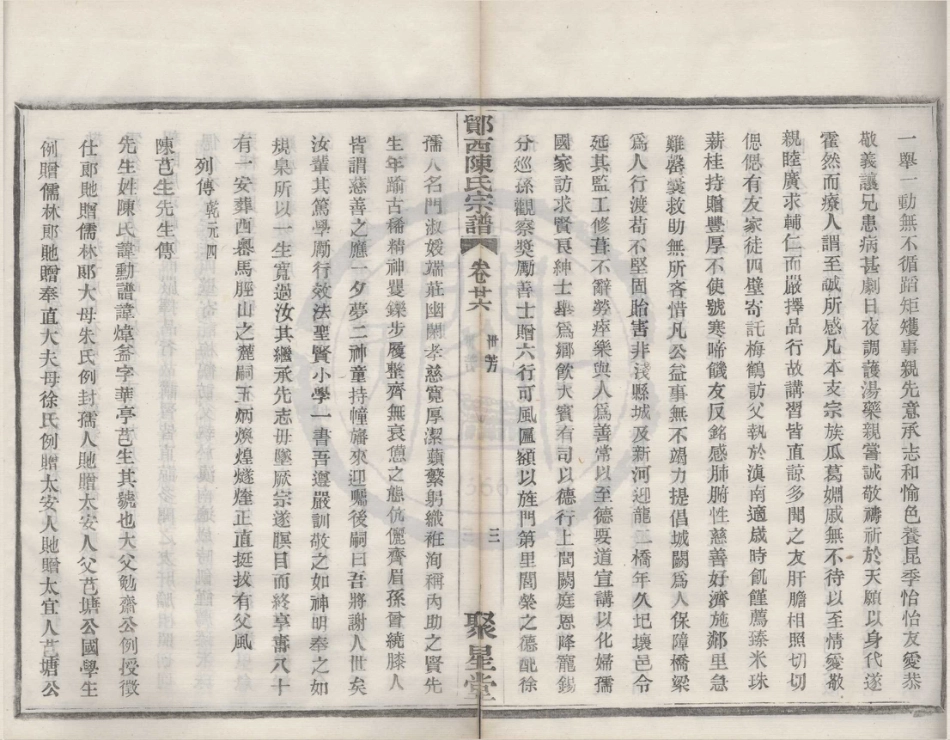 一舉一動無不循蹈矩矱事親先意承志和愉色養昆季怡怡友愛恭
敬義讓兄患病甚劇日夜調護湯藥親嘗誠敬禱祈於天願以身代遂
霍然而瘳人謂至誠所感凡本支宗族瓜葛婣戚無不待以至情愛敬
親睦廣求輔仁而嚴擇品行故講習皆直諒多聞之友肝膽相照切切
偲偲有友家徒四壁寄託梅鶴訪父執於滇南適歲時飢饉薦臻米珠
薪桂持贈豐厚不使號寒啼饑友反銘感肺腑性慈善好濟施鄰里急
難罄囊救助無所吝惜凡公益事無不竭力提倡城闕爲人保障橋梁
爲人行渡苟不堅固貽害非淺縣城及新河迎龍二橋年久圯壞邑令
延其監工修葺不辭勞瘁樂與人爲善常以至德要道宣講以化婦孺
國家訪求賢良紳士舉爲鄉飲大賓有司以德行上聞闕庭恩降寵錫
分巡孫觀察獎勵善士贈六行可風匾額以旌門第里閭榮之德配徐
鄖西陳氏宗譜
卷廿六
世芳
三
聚星堂
孺人名門淑媛端莊幽閑孝慈寬厚潔蘋蘩躬織袵洵稱內助之賢先
生年踰古稀精神矍鑠步履整齊無衰憊之態伉儷齊眉孫曾繞膝人
皆謂慈善之應一夕夢二神童持幢旛來迎囑後嗣曰吾將謝人世矣
汝輩其篤學勵行效法聖賢小學一書吾遵嚴訓敬之如神明奉之如
規臬所以一生寬過汝其繼承先志毋墜厥宗遂瞑目而終享壽八十
有一安葬西鄉馬脛山之麓嗣五炳煥煌燧煃正直挺拔有父風
列傳 乾元四
陳芑生先生傳
先生姓陳氏諱勳譜諱煒爺字華亭芑生其號也大父勉齋公例授徵
仕郎貤贈儒林郎大母朱氏例封孺人貤贈太安人父芑塘公國學生
例贈儒林郎貤贈奉直大夫母徐氏例贈太安人貤贈太宜人芑塘公